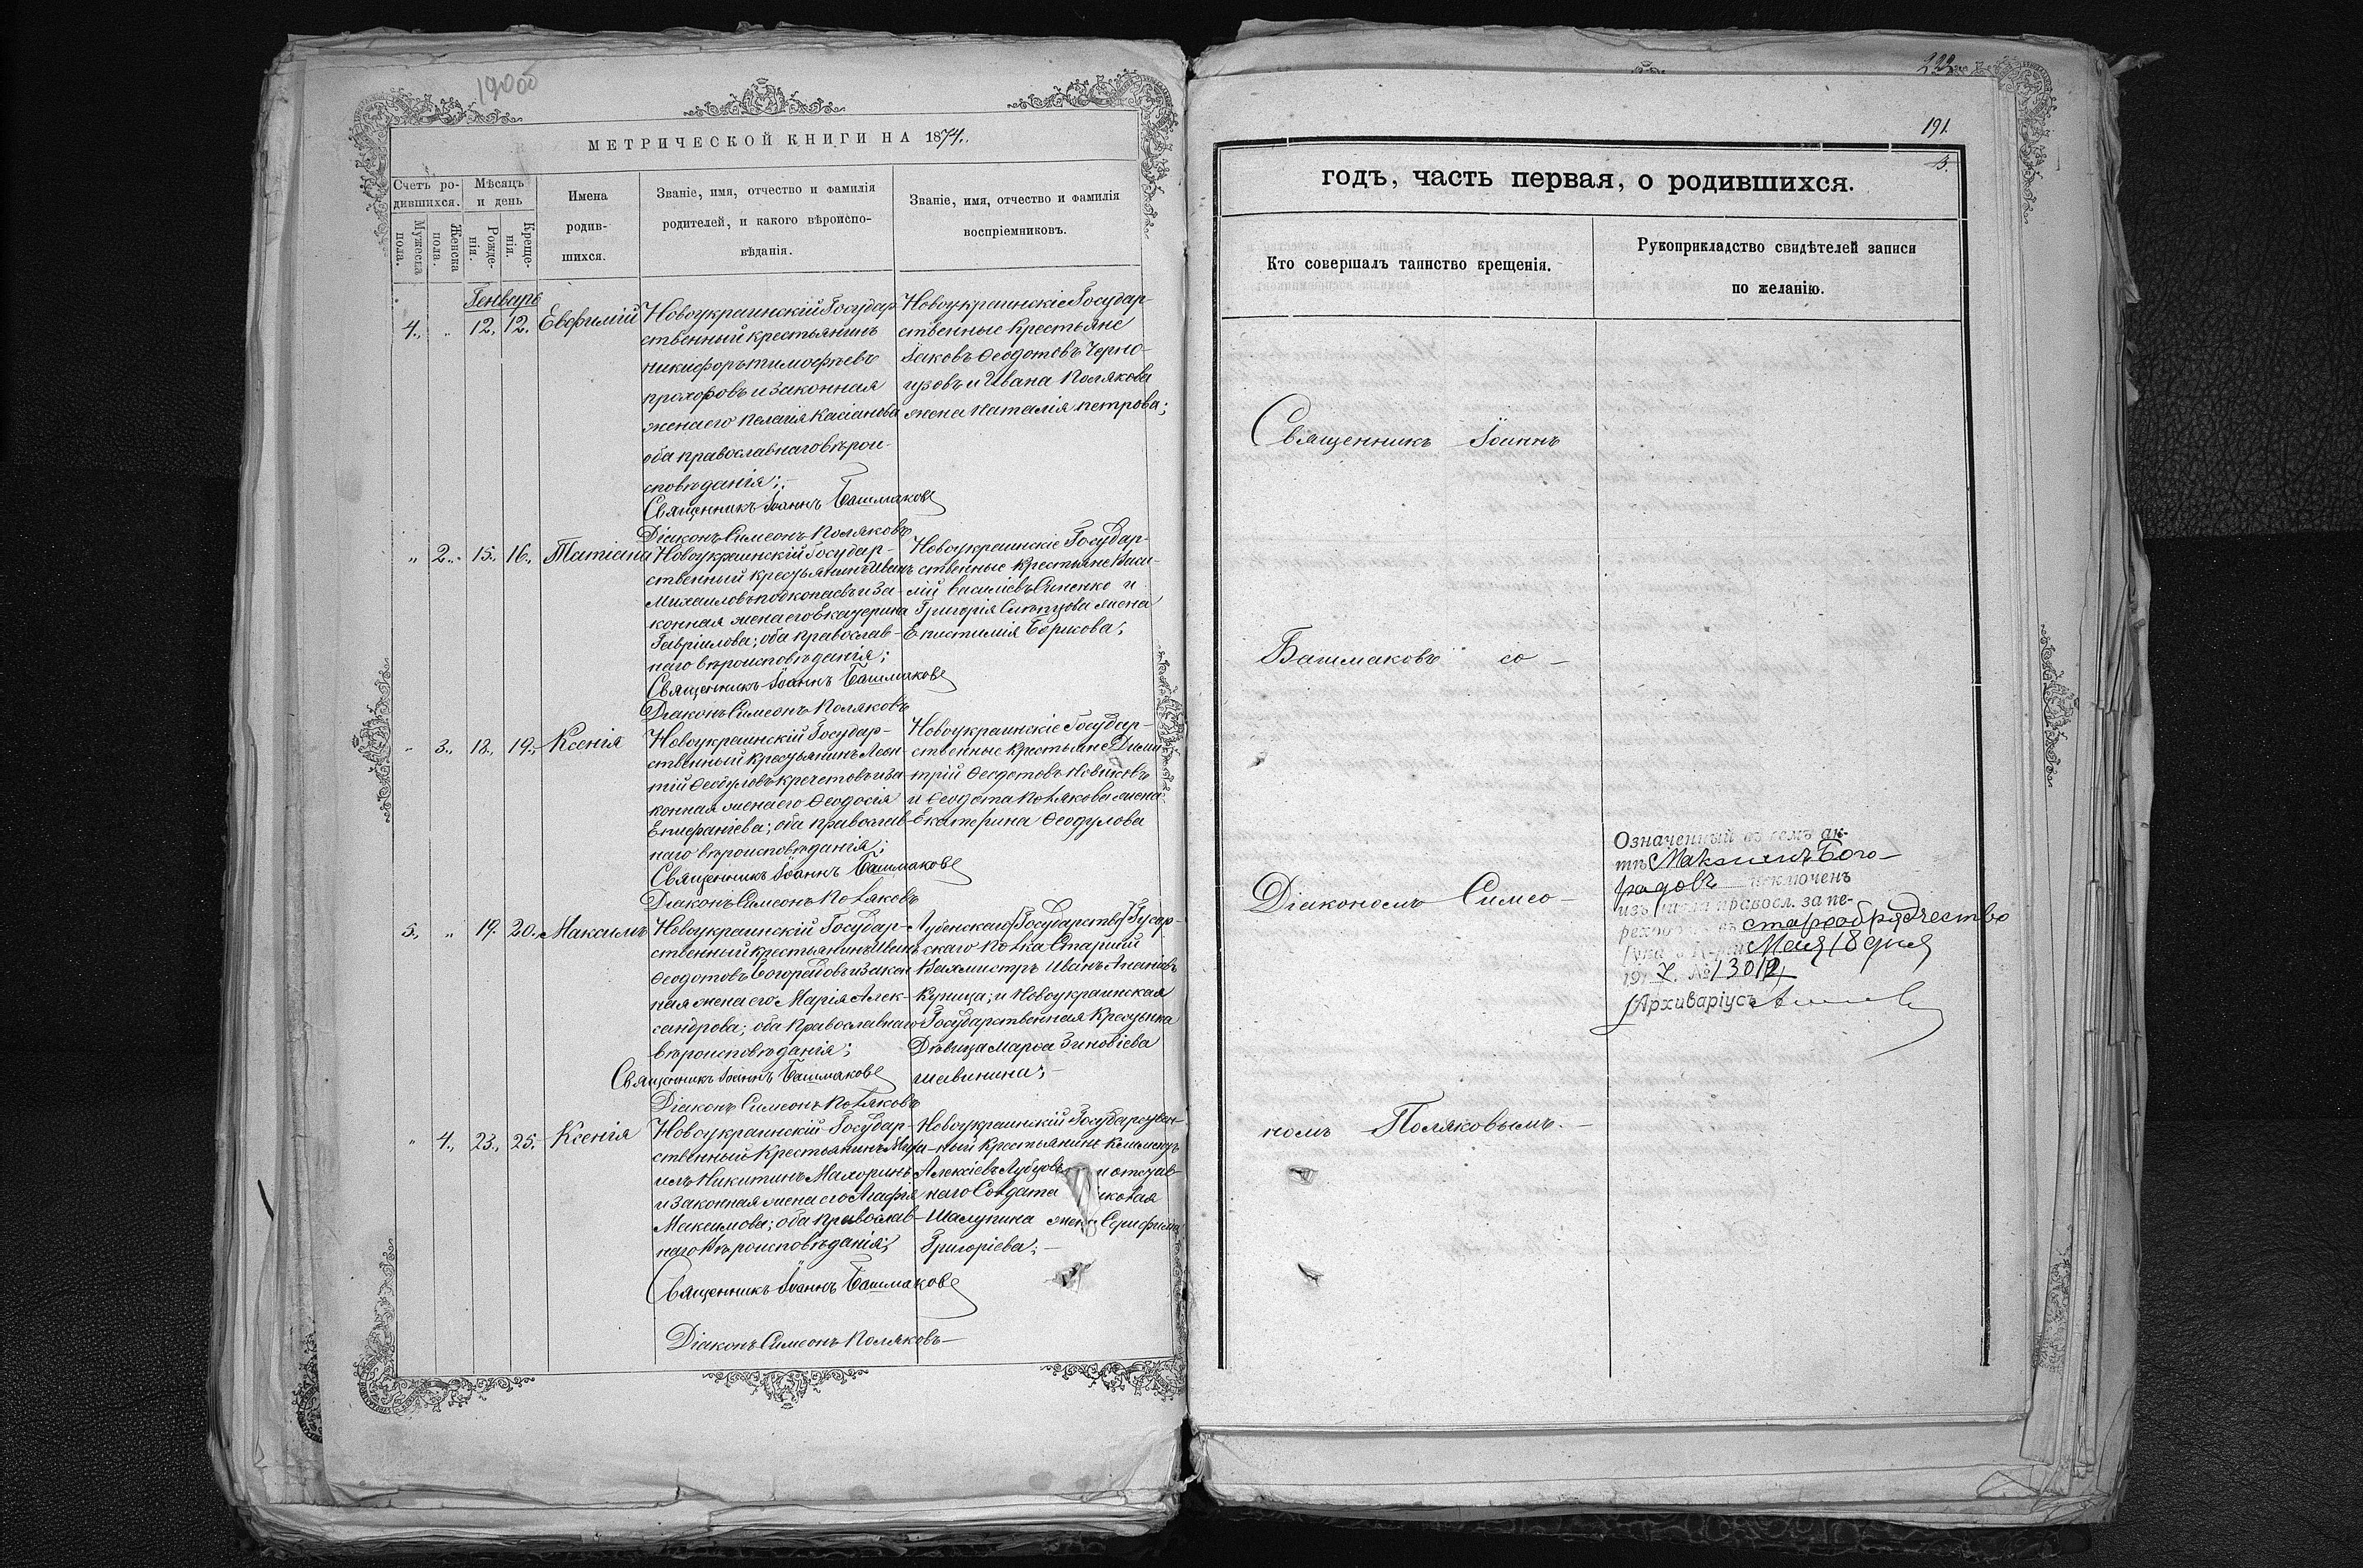 19000
МЕТРИЧЕСКОЙ КНИГИ НА 1874.
Счетъ ро-
дившихся.
Мѣсяцъ
и день
Имена
родив-
шихся.
Званіе, имя, отчество и фамилія
родителей, и какого вѣроиспо-
вѣданія.
Званіе, имя, отчество и фамилія
воспріемниковъ.
Мужеска
пола.
Женска
пола.
Рожде-
нія.
Креще-
нія.
Генварь
4., „ 12. 12. Евфимій
Новоукраинскій Государ-
ственный крестьянинъ
никифоръ тимофѣевъ
прохоровъ и законная
жена его пелагія касіанова
оба православнаго вѣрои-
сповѣданія;
Священникъ Іоаннъ Башмаковъ
Діаконъ Симеонъ Поляковъ
Новоукраинскіе Государ-
ственные крестьяне
Іаковъ Ѳеодотовъ Черно-
и Ивана Полякова
жена наталія петрова;
„ 2. 15. 16. Татіана
Новоукраинскій Государ-
ственный крестьянинъ Иванъ
Михаиловъ подкопаевъ и за-
конная жена его Екатерина
Гавріилова; оба православ-
наго вѣроисповѣданія;
Священникъ Іоаннъ Башмаковъ
Діаконъ Симеонъ Поляковъ
Новоукраинскіе Государ-
ственные крестьяне Васи-
лій василіевъ и
Григорія Слѣпцова жена
Епистимія Борисова;
„ 3. 18. 19. Ксенія
Новоукраинскій Государ-
ственный крестьянинъ Леон-
тій Ѳеодуловъ кречетовъ и за-
конная жена его Ѳеодосія
Епифаніева; оба православ-
наго вѣроисповѣданія;
Священникъ Іоаннъ Башмаковъ
Діаконъ Симеонъ Поляковъ
Новоукраинскіе Государ-
ственные крестьяне Дими-
трій Ѳеодотовъ Новиковъ
и Ѳеодота Полякова жена
Екатерина Ѳеодулова
5. „ 19. 20. Максимъ
Новоукраинскій Государ-
ственный крестьянинъ Иванъ
Ѳеодотовъ и закон-
ная жена его Марія Алек-
сандрова; оба Православнаго
вѣроисповѣданія;
Священникъ Іоаннъ Башмаковъ
Діаконъ Симеонъ Поляковъ
Лубенскаго Гусар-
скаго Полка Старшій
Вахмистръ Иванъ
Куница; и Новоукраинская
Государственная Крестьянка
Дѣвица Марѳа Зиновіева
шавинина;
„ 4. 23. 25. Ксенія
Новоукраинскій Государ-
ственный Крестьянинъ Миха-
илъ Никитинъ Махоринъ
и законная жена его Агафія
Максимова; оба православ-
наго вѣроисповѣданія;
Священникъ Іоаннъ Башмаковъ
Діаконъ Симеонъ Поляковъ
Новоукраинскій Государствен-
ный Крестьянинъ Климентъ
Алексіевъ и отстав-
наго Солдата
Шалупина жена Серафима
Григоріева;
191.
3.
годъ, часть первая, о родившихся.
Кто совершалъ таинство крещенія.
Рукоприкладство свидѣтелей записи
по желанію.
Священникъ Іоаннъ
Башмаковъ со
Діакономъ Симео-
номъ Поляковымъ.
Означенный въ семъ ак-
тѣ Максимъ Бого-
радовъ исключенъ
изъ числа правосл. за пе-
реходомъ въ старообрядчество
Мая 18 дня
1917. №
Архиваріусъ